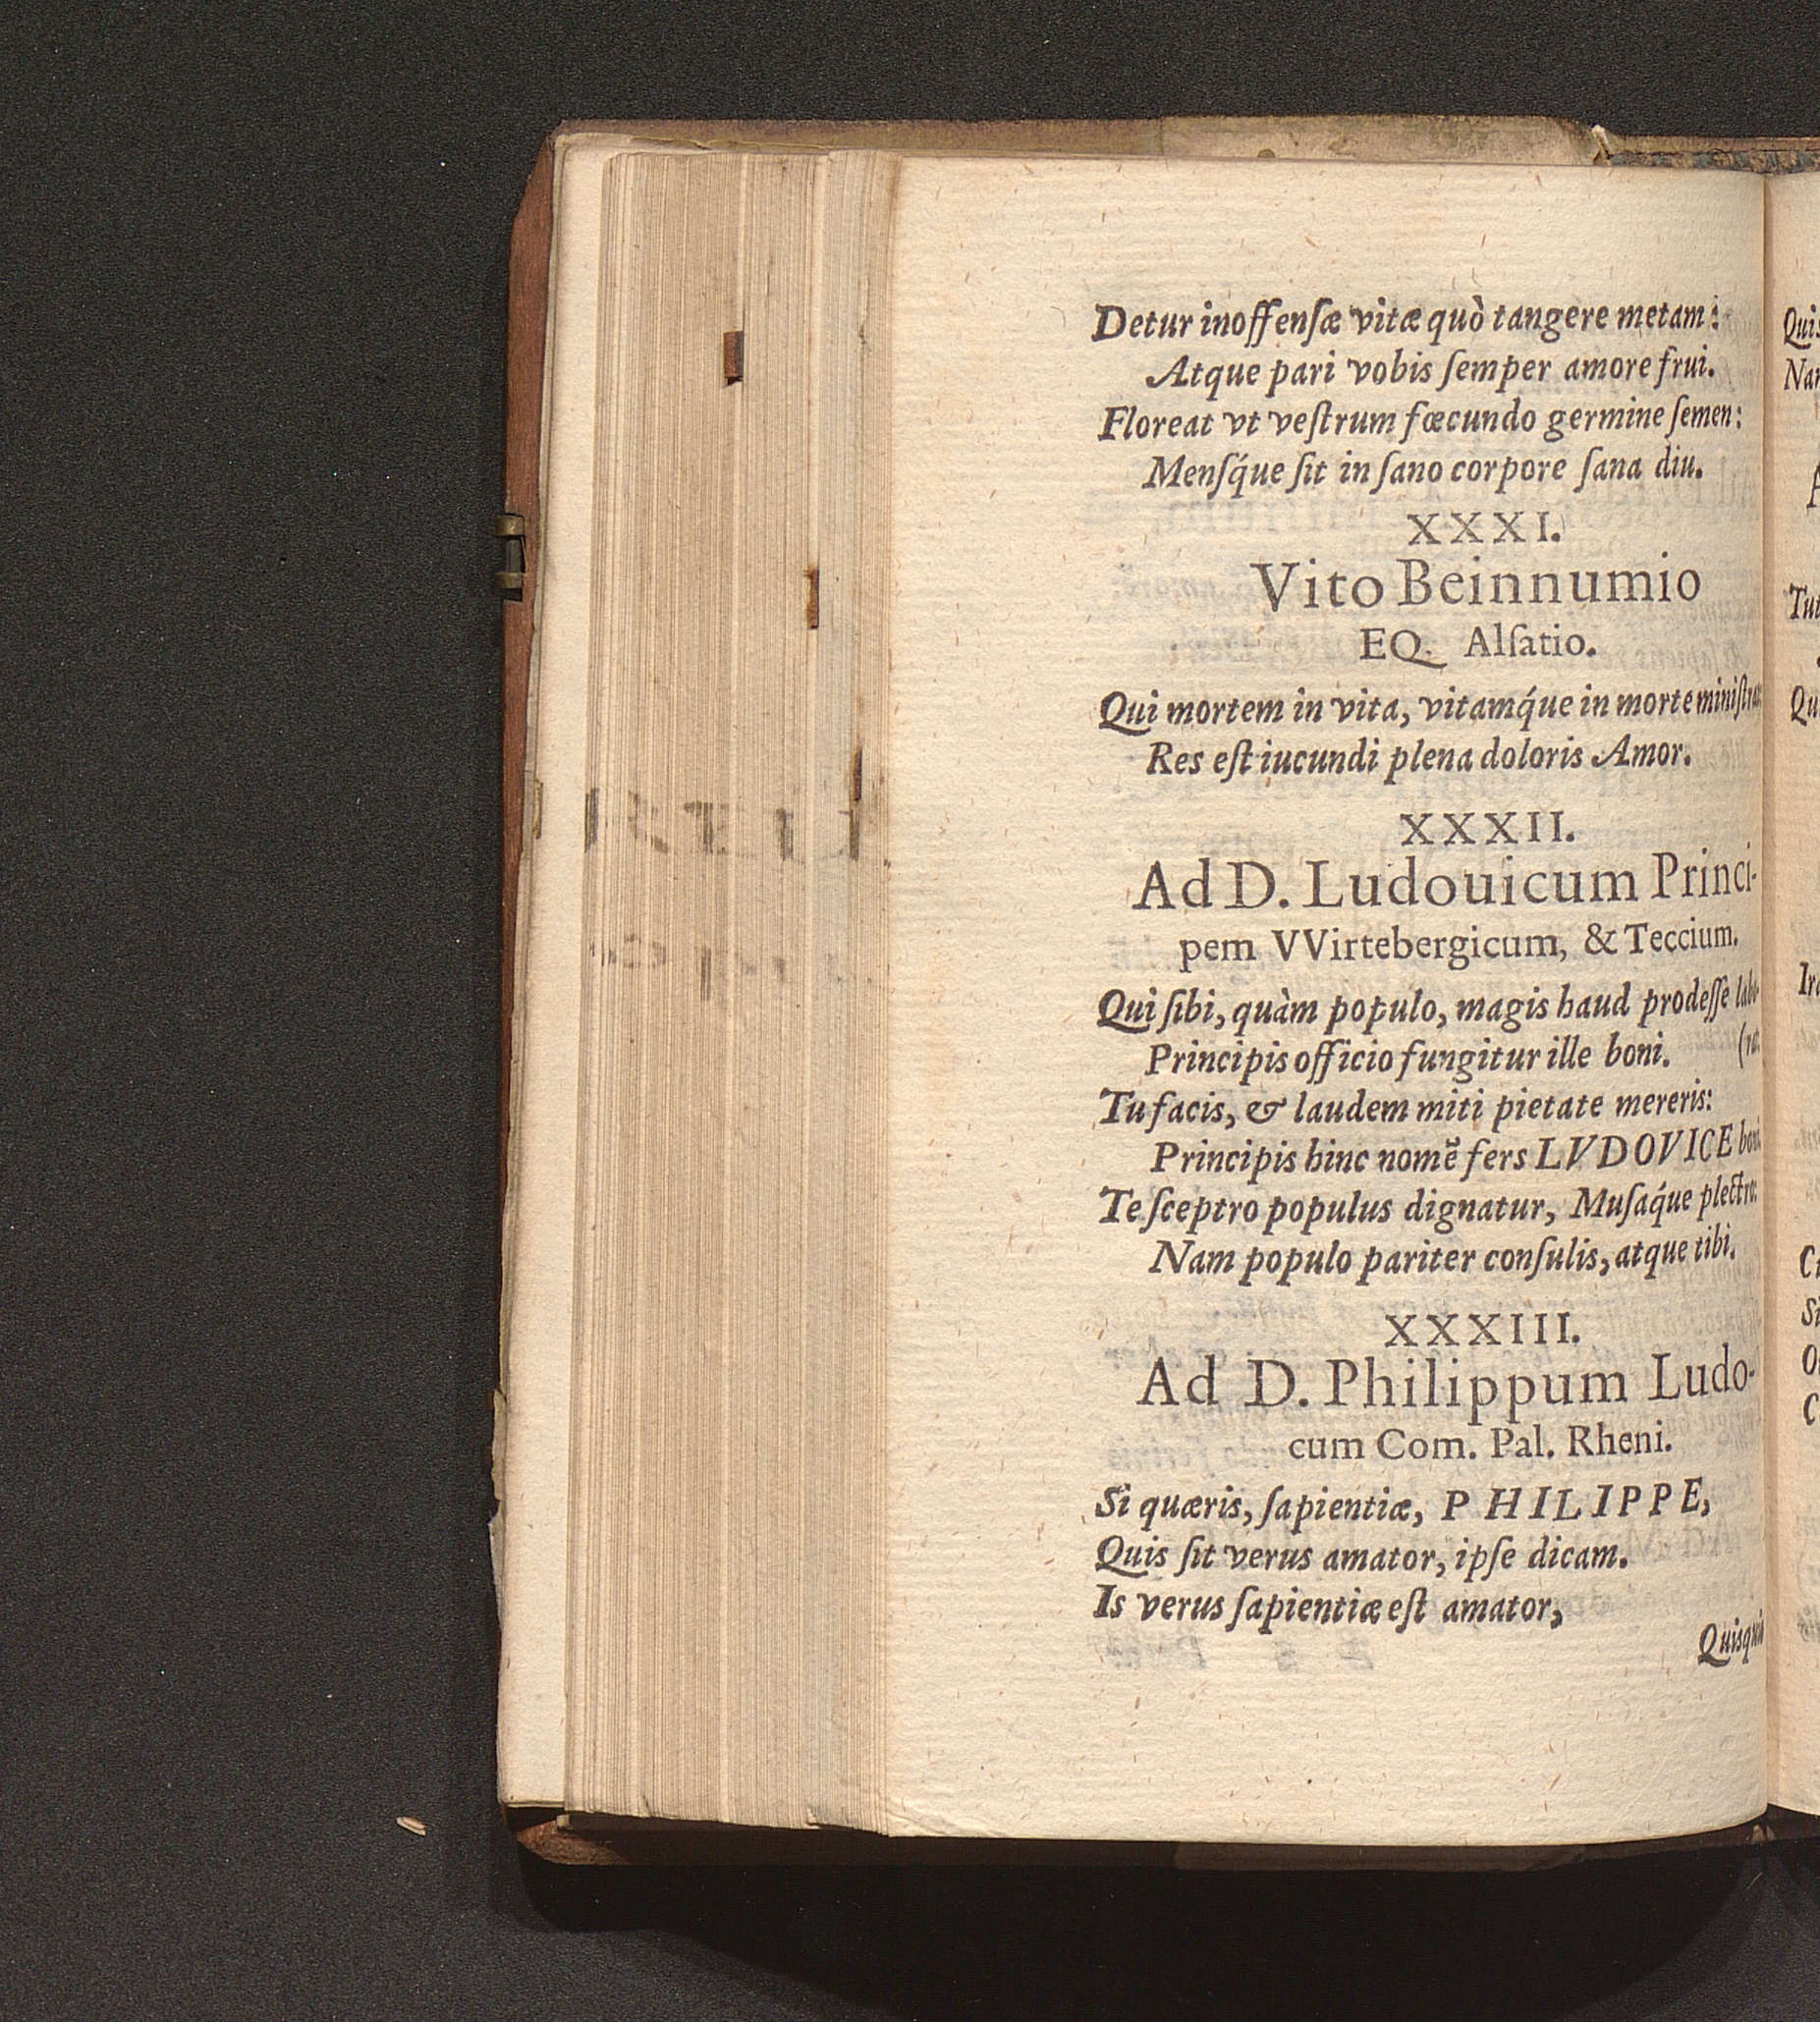 Detur inoffenſæ vitæ quò tangere metam:
Atque pari vobis ſemper amore frui.
Floreat vt veſtrum fœcundo germine ſemen:
Menſq́ue ſit in ſano corpore ſana diu.
XXXI.
Vito Beinnumio
EQ. Alſatio.
Qui mortem in vita, vitamq́ue in morte miniſtrat
Res eſt iucundi plena doloris Amor.
XXXII.
Ad D. Ludouicum Princi-
pem VVirtebergicum, & Teccium.
Qui ſibi, quàm populo, magis haud prodeſſe labo-
Principis officio fungitur ille boni. (rat
Tu facis, & laudem miti pietate mereris:
Principis hinc nomē fers LVDOVICE boni.
Te ſceptro populus dignatur, Muſaq́ue plectro:
Nam populo pariter conſulis, atque tibi.
XXXIII.
Ad D. Philippum Ludo-
cum Com. Pal. Rheni.
Si quæris, ſapientiæ, PHILIPPE,
Quis ſit verus amator, ipſe dicam.
Is verus ſapientiæ eſt amator,
Quisquis